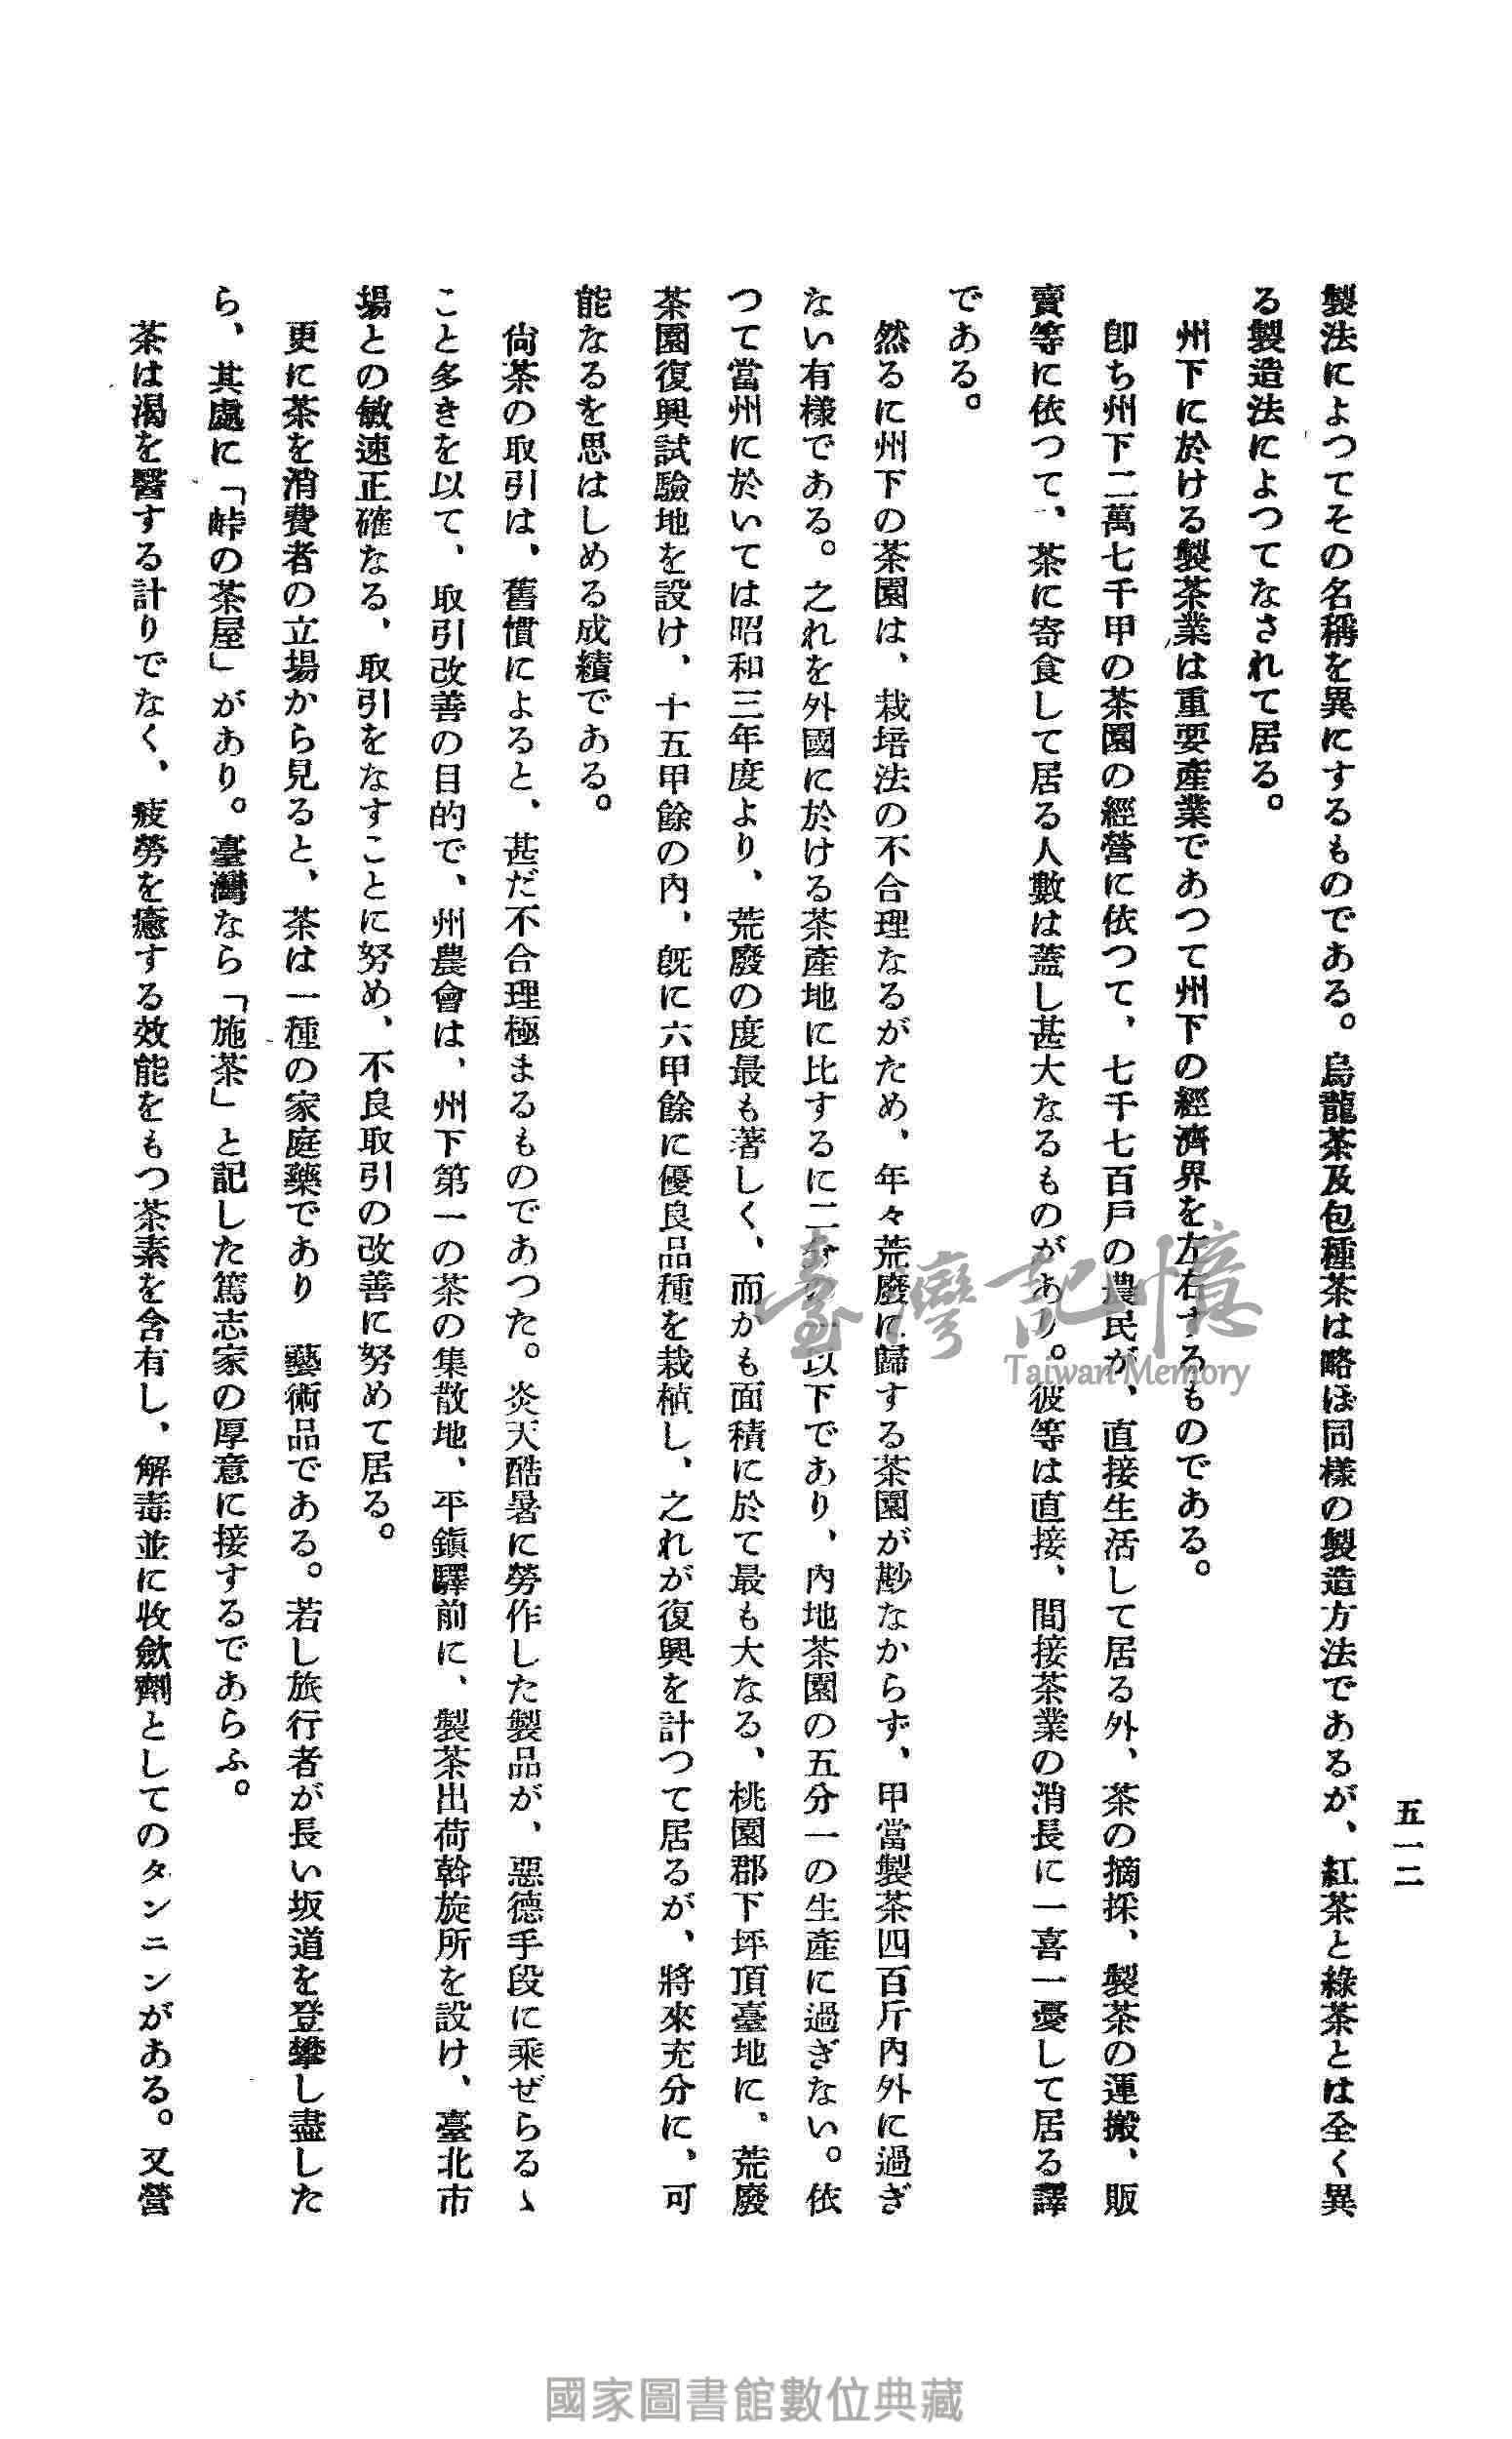 五一二
製法によつてその名稱を異にするものである。烏龍茶及包種茶は略ほ同樣の製造方法であるが、紅茶と綠茶とは全く異
る製造法によつてなされて居る。
州下に於ける製茶業は重要產業であつて州下の經濟界を左右するものである。
卽ち州下二萬七千甲の茶園の經營に依つて、七千七百戶の農民が、直接生活して居る外、茶の摘採、製茶の運搬、販
賣等に依つて、茶に寄食して居る人數は蓋し甚大なるものがあり。彼等は直接、間接茶業の消長に一喜一憂して居る譯
である。
然るに州下の茶園は、栽培法の不合理なるがため、年々荒廢に歸する茶園が尠なからず、甲當製茶四百斤內外に過ぎ
ない有樣である。之れを外國に於ける茶產地に比するに二分の一以下であり、內地茶園の五分一の生產に過ぎない。依
つて當州に於いては昭和三年度より、荒廢の度最も著しく、而かも面積に於て最も大なる、桃園郡下坪頂臺地に、荒廢
茶園復興試驗地を設け、十五甲餘の內、旣に六甲餘に優良品種を栽植し、之れが復興を計つて居るが、將來充分に、可
能なるを思はしめる成績である。
尙茶の取引は、舊慣によると、甚だ不合理極まるものであつた。炎天酷暑に勞作した製品が、惡德手段に乘ぜらるゝ
こと多きを以て、取引改善の目的で、州農會は、州下第一の茶の集散地、平鎭驛前に、製茶出荷斡旋所を設け、臺北市
場との敏速正確なる、取引をなすことに努め、不良取引の改善に努めて居る。
更に茶を消費者の立場から見ると、茶は一種の家庭藥であり　藝術品である。若し旅行者が長い坂道を登攀し盡した
ら、其處に「峠の茶屋」があり。臺灣なら「施茶」と記した篤志家の厚意に接するであらふ。
茶は渴を醫する計りでなく、疲勞を癒する效能をもつ茶素を含有し、解毒並に收斂劑としてのタンニンがある。又營
臺灣記憶
Taiwan Memory
國家圖書館數位典藏